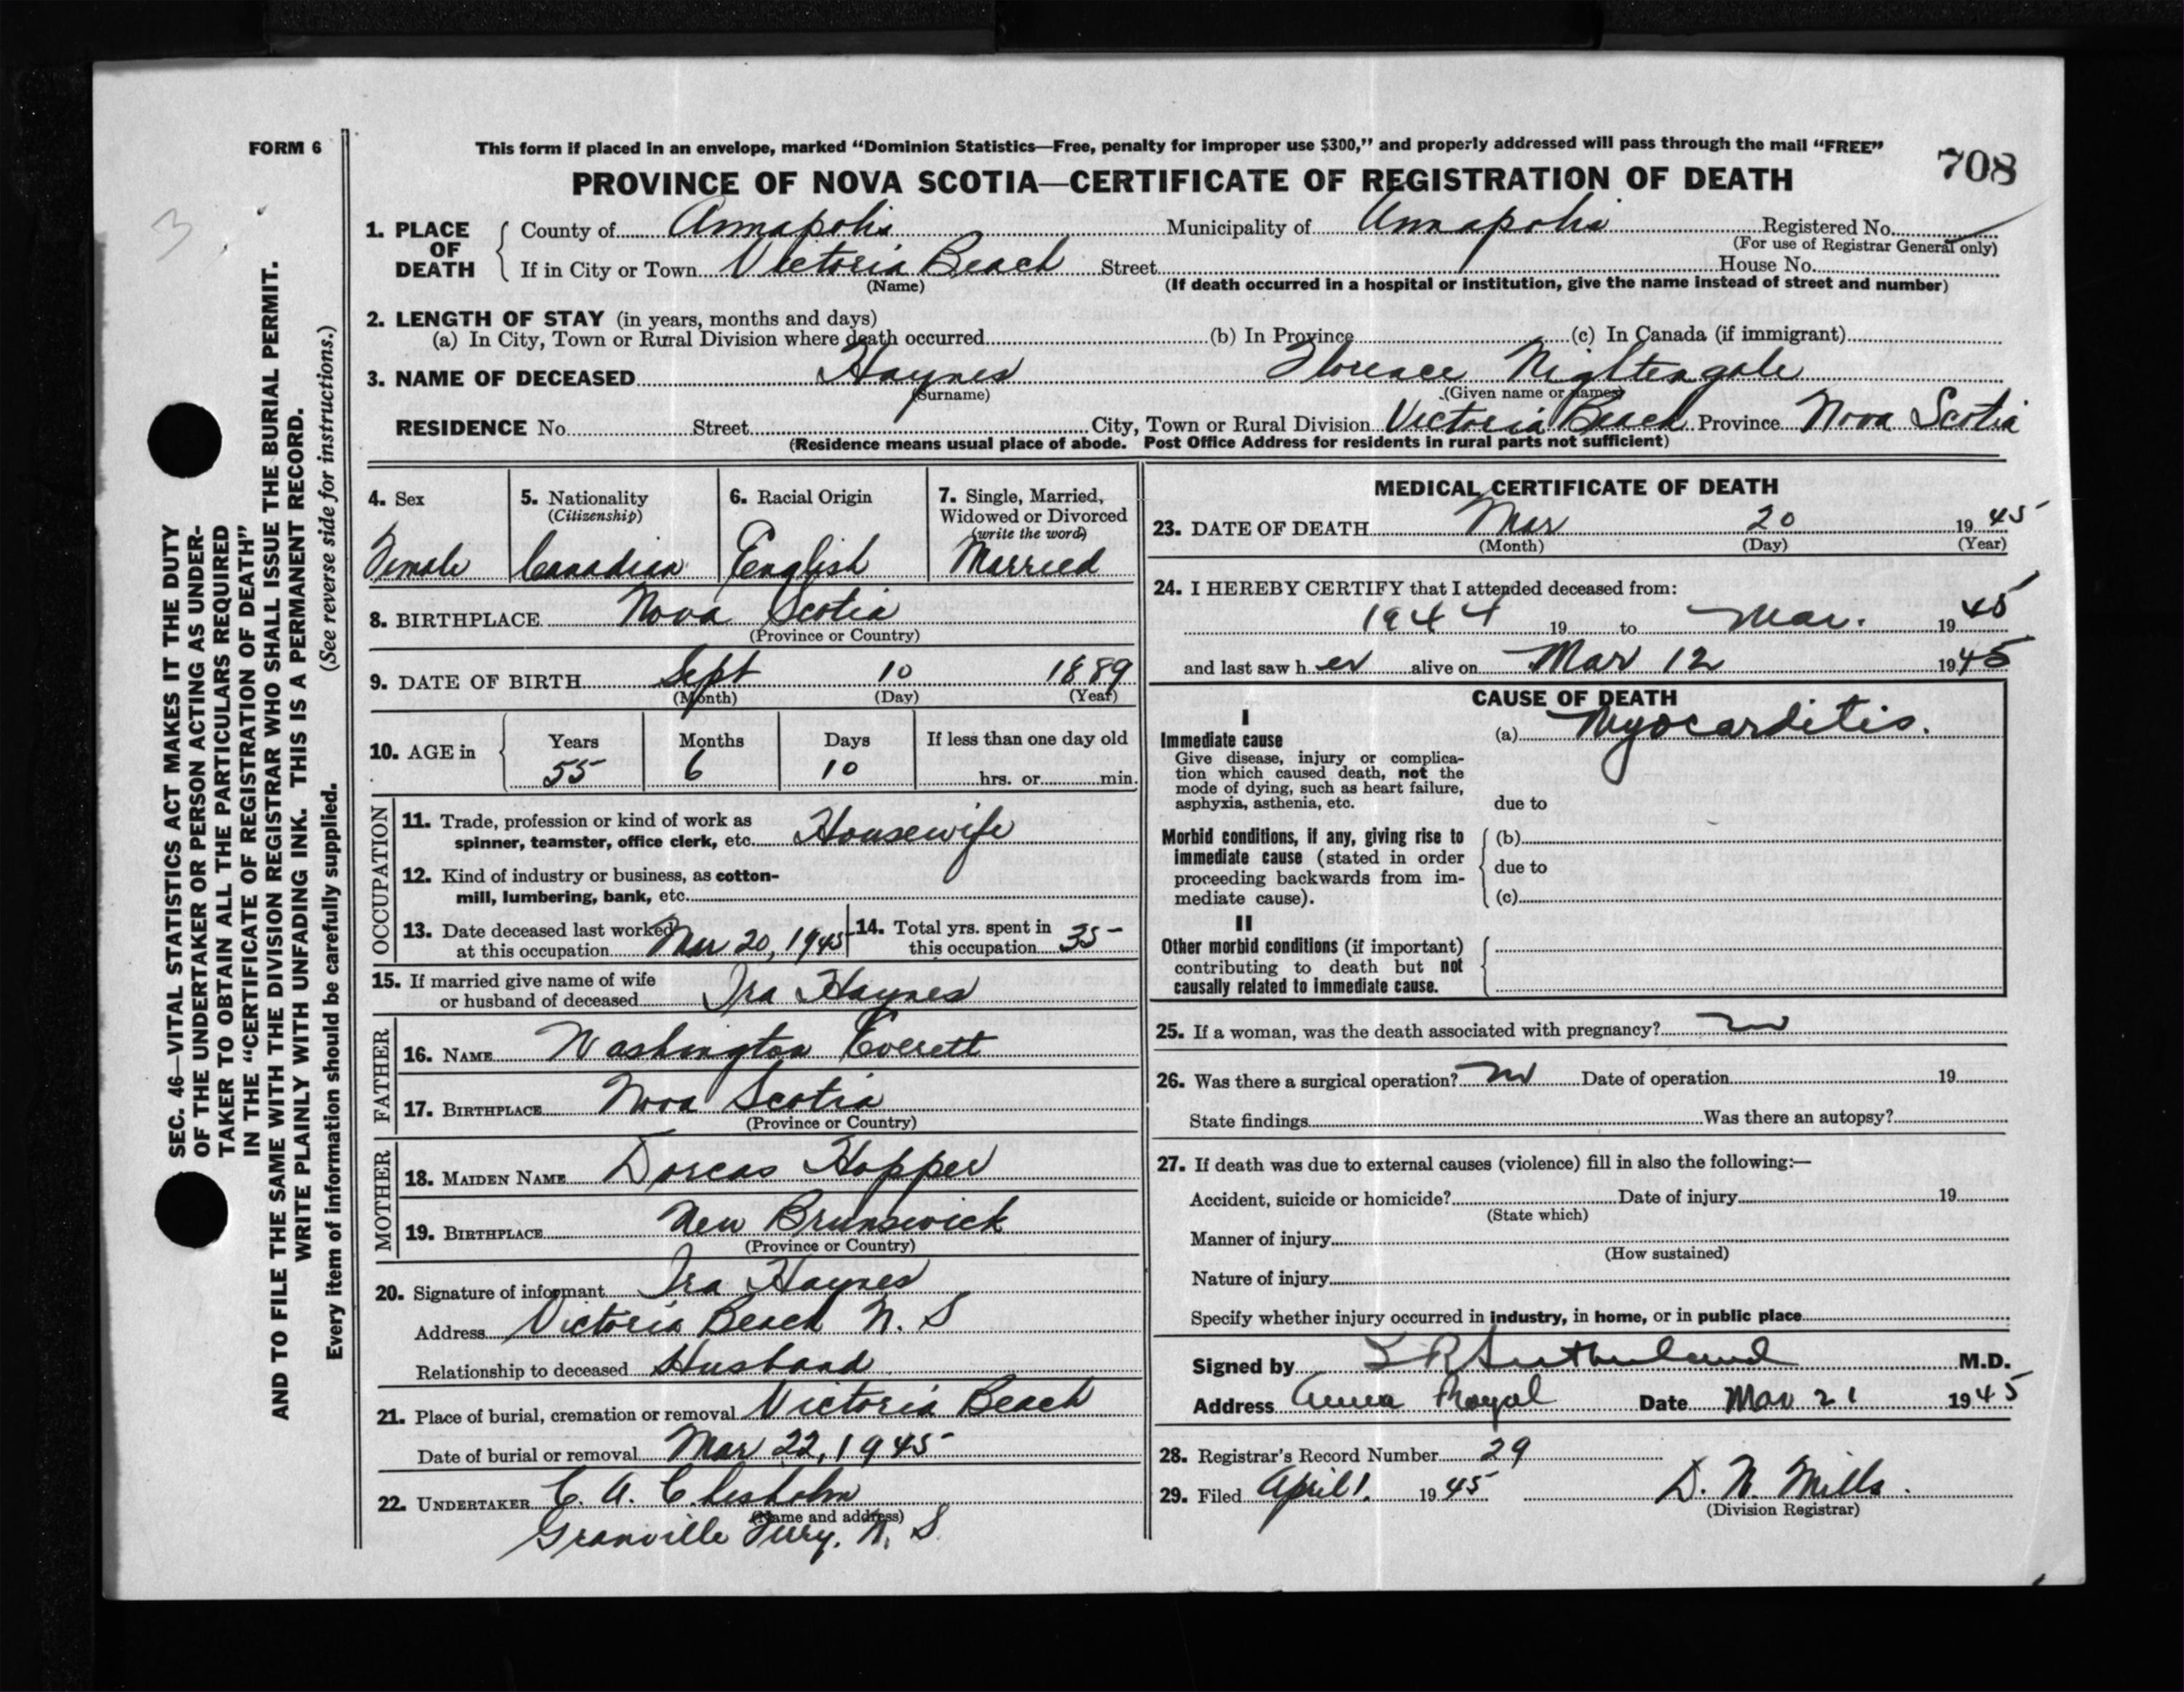 FORM 6
This form if placed in an envelope, marked “Dominion Statistics—Free, penalty for improper use $300,” and properly addressed will pass through the mail “FREE”
708
PROVINCE OF NOVA SCOTIA—CERTIFICATE OF REGISTRATION OF DEATH
3
SEC. 46—VITAL STATISTICS ACT MAKES IT THE DUTY
OF THE UNDERTAKER OR PERSON ACTING AS UNDER-
TAKER TO OBTAIN ALL THE PARTICULARS REQUIRED
IN THE “CERTIFICATE OF REGISTRATION OF DEATH”
AND TO FILE THE SAME WITH THE DIVISION REGISTRAR WHO SHALL ISSUE THE BURIAL PERMIT.
WRITE PLAINLY WITH UNFADING INK. THIS IS A PERMANENT RECORD.
Every item of information should be carefully supplied. (See reverse side for instructions.)
1. PLACE OF DEATH
County of Annapolis Municipality of Annapolis Registered No.
(For use of Registrar General only)
If in City or Town Victoria Beach Street House No.
(Name) (If death occurred in a hospital or institution, give the name instead of street and number)
2. LENGTH OF STAY (in years, months and days)
(a) In City, Town or Rural Division where death occurred (b) In Province (c) In Canada (if immigrant)
3. NAME OF DECEASED Haynes Florence Nightengale
(Surname) (Given name or names)
RESIDENCE No. Street City, Town or Rural Division Victoria Beach Province Nova Scotia
(Residence means usual place of abode. Post Office Address for residents in rural parts not sufficient)
4. Sex
Female
5. Nationality
(Citizenship)
Canadian
6. Racial Origin
English
7. Single, Married,
Widowed or Divorced
(write the word)
Married
8. BIRTHPLACE Nova Scotia
(Province or Country)
9. DATE OF BIRTH Sept 10 1889
(Month) (Day) (Year)
10. AGE in Years Months Days If less than one day old
55 6 10 hrs. or min.
OCCUPATION
11. Trade, profession or kind of work as
spinner, teamster, office clerk, etc. Housewife
12. Kind of industry or business, as cotton-
mill, lumbering, bank, etc.
13. Date deceased last worked
at this occupation Mar 20, 1945
14. Total yrs. spent in
this occupation 35
15. If married give name of wife
or husband of deceased Ira Haynes
FATHER
16. NAME Washington Everett
17. BIRTHPLACE Nova Scotia
(Province or Country)
MOTHER
18. MAIDEN NAME Dorcas Hopper
19. BIRTHPLACE New Brunswick
(Province or Country)
20. Signature of informant Ira Haynes
Address Victoria Beach N. S
Relationship to deceased Husband
21. Place of burial, cremation or removal Victoria Beach
Date of burial or removal Mar 22, 1945
22. UNDERTAKER C. A. Chisholm
(Name and address)
Granville Ferry, N. S
MEDICAL CERTIFICATE OF DEATH
23. DATE OF DEATH Mar 20 1945
(Month) (Day) (Year)
24. I HEREBY CERTIFY that I attended deceased from:
1944 19 to Mar. 1945
and last saw her alive on Mar 12 1945
CAUSE OF DEATH
I
Immediate cause
Give disease, injury or complica-
tion which caused death, not the
mode of dying, such as heart failure,
asphyxia, asthenia, etc.
(a) Myocarditis.
due to
Morbid conditions, if any, giving rise to
immediate cause (stated in order
proceeding backwards from im-
mediate cause).
(b)
due to
(c)
II
Other morbid conditions (if important)
contributing to death but not
causally related to immediate cause.
25. If a woman, was the death associated with pregnancy? no
26. Was there a surgical operation? no Date of operation 19
State findings Was there an autopsy?
27. If death was due to external causes (violence) fill in also the following:—
Accident, suicide or homicide? Date of injury 19
(State which)
Manner of injury
(How sustained)
Nature of injury
Specify whether injury occurred in industry, in home, or in public place
Signed by L R Sutherland M.D.
Address Anna Royal Date Mar 21 1945
28. Registrar's Record Number 29
29. Filed April 1. 1945 D. N. Mills.
(Division Registrar)